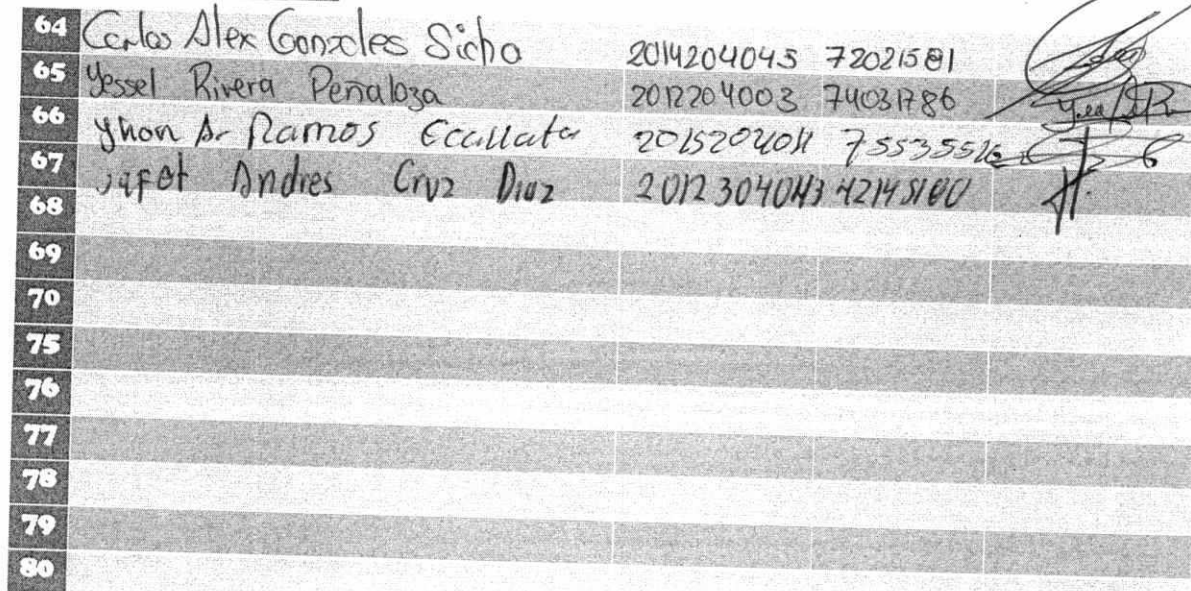 64 Carlos Alex Gonzales Sicha 2014204045 72021581
65 Yessel Rivera Peñaloza 2012204003 74031786
66 Yhon A. Ramos Ccallata 2015204011 75535516
67 Japet Andres Cruz Diaz 2012304043 42145180
68
69
70
75
76
77
78
79
80